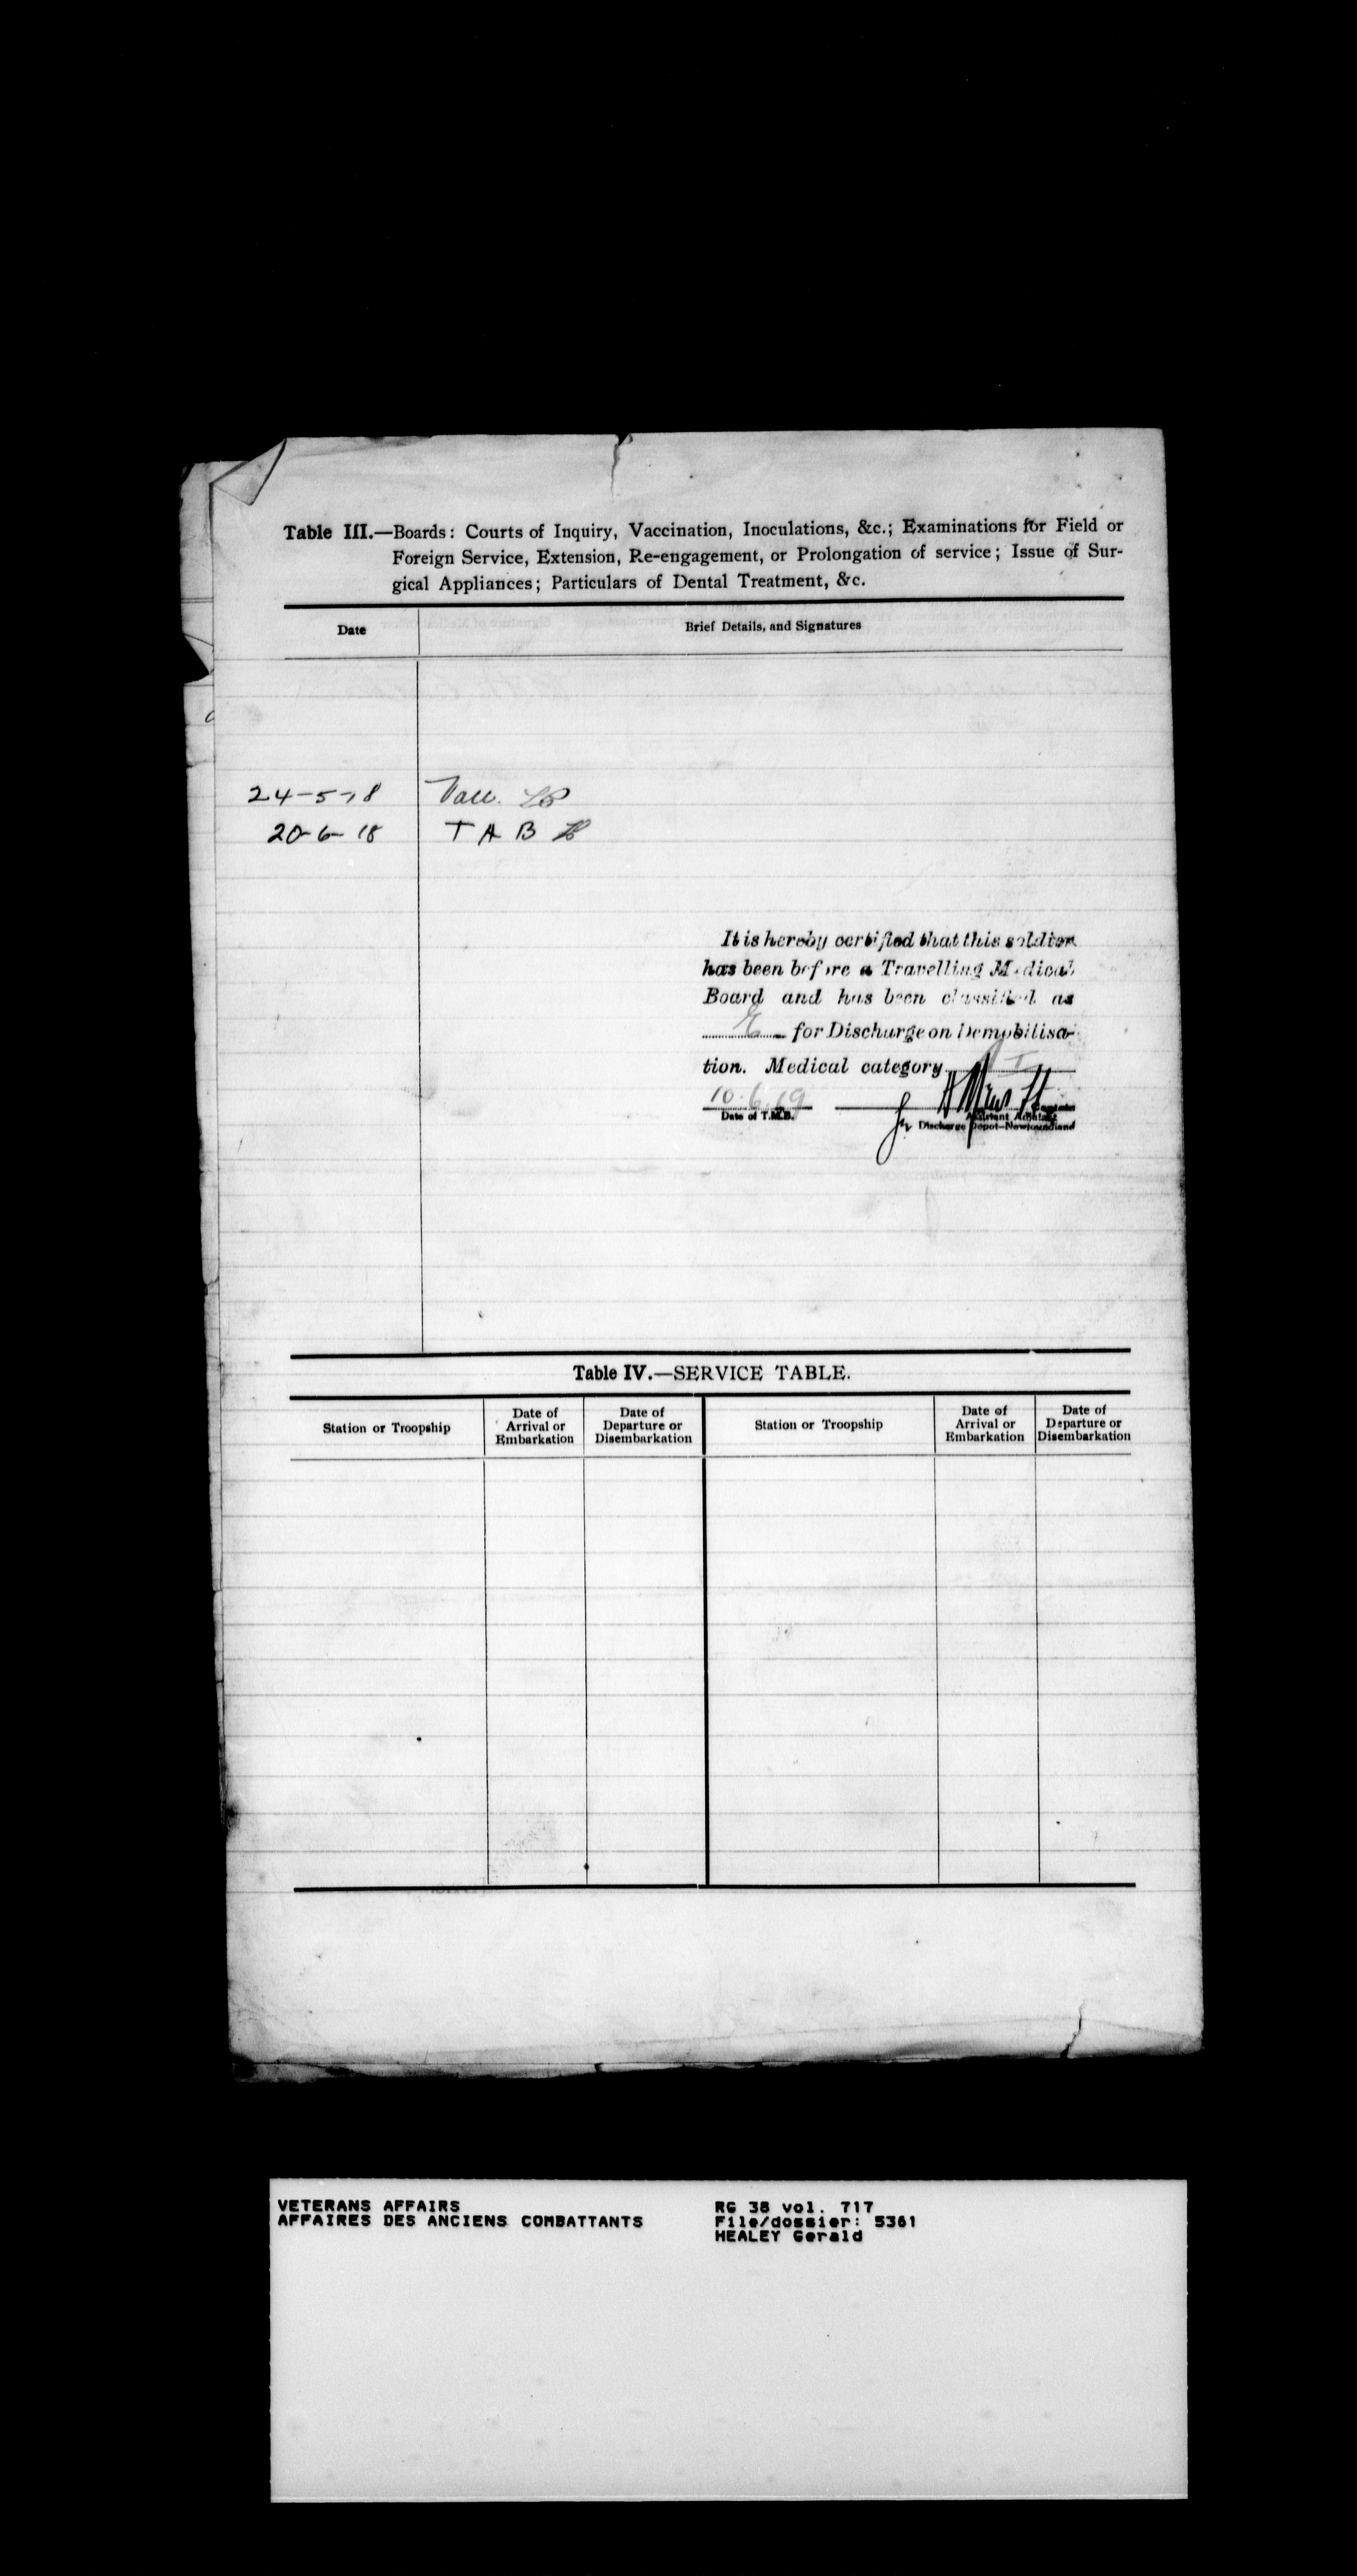 Table III.—Boards: Courts of Inquiry, Vaccination, Inoculations, &c.; Examinations for Field or
Foreign Service, Extension, Re-engagement, or Prolongation of service; Issue of Sur-
gical Appliances; Particulars of Dental Treatment, &c.
Date
Brief Details, and Signatures
24-5-18 Vacc.
20-6-18 T A B
It is hereby certified that this soldier
has been before a Travelling Medical
Board and has been classified as
E for Discharge on Demobilisa-
tion. Medical category I
10.6.19
Date of T.M.B.
Captain
Assistant Adjutant
Discharge Depot-Newfoundland
Table IV.—SERVICE TABLE.
Station or Troopship
Date of
Arrival or
Embarkation
Date of
Departure or
Disembarkation
Station or Troopship
Date of
Arrival or
Embarkation
Date of
Departure or
Disembarkation
VETERANS AFFAIRS
AFFAIRES DES ANCIENS COMBATTANTS
RG 38 vol. 717
File/dossier: 5361
HEALEY Gerald